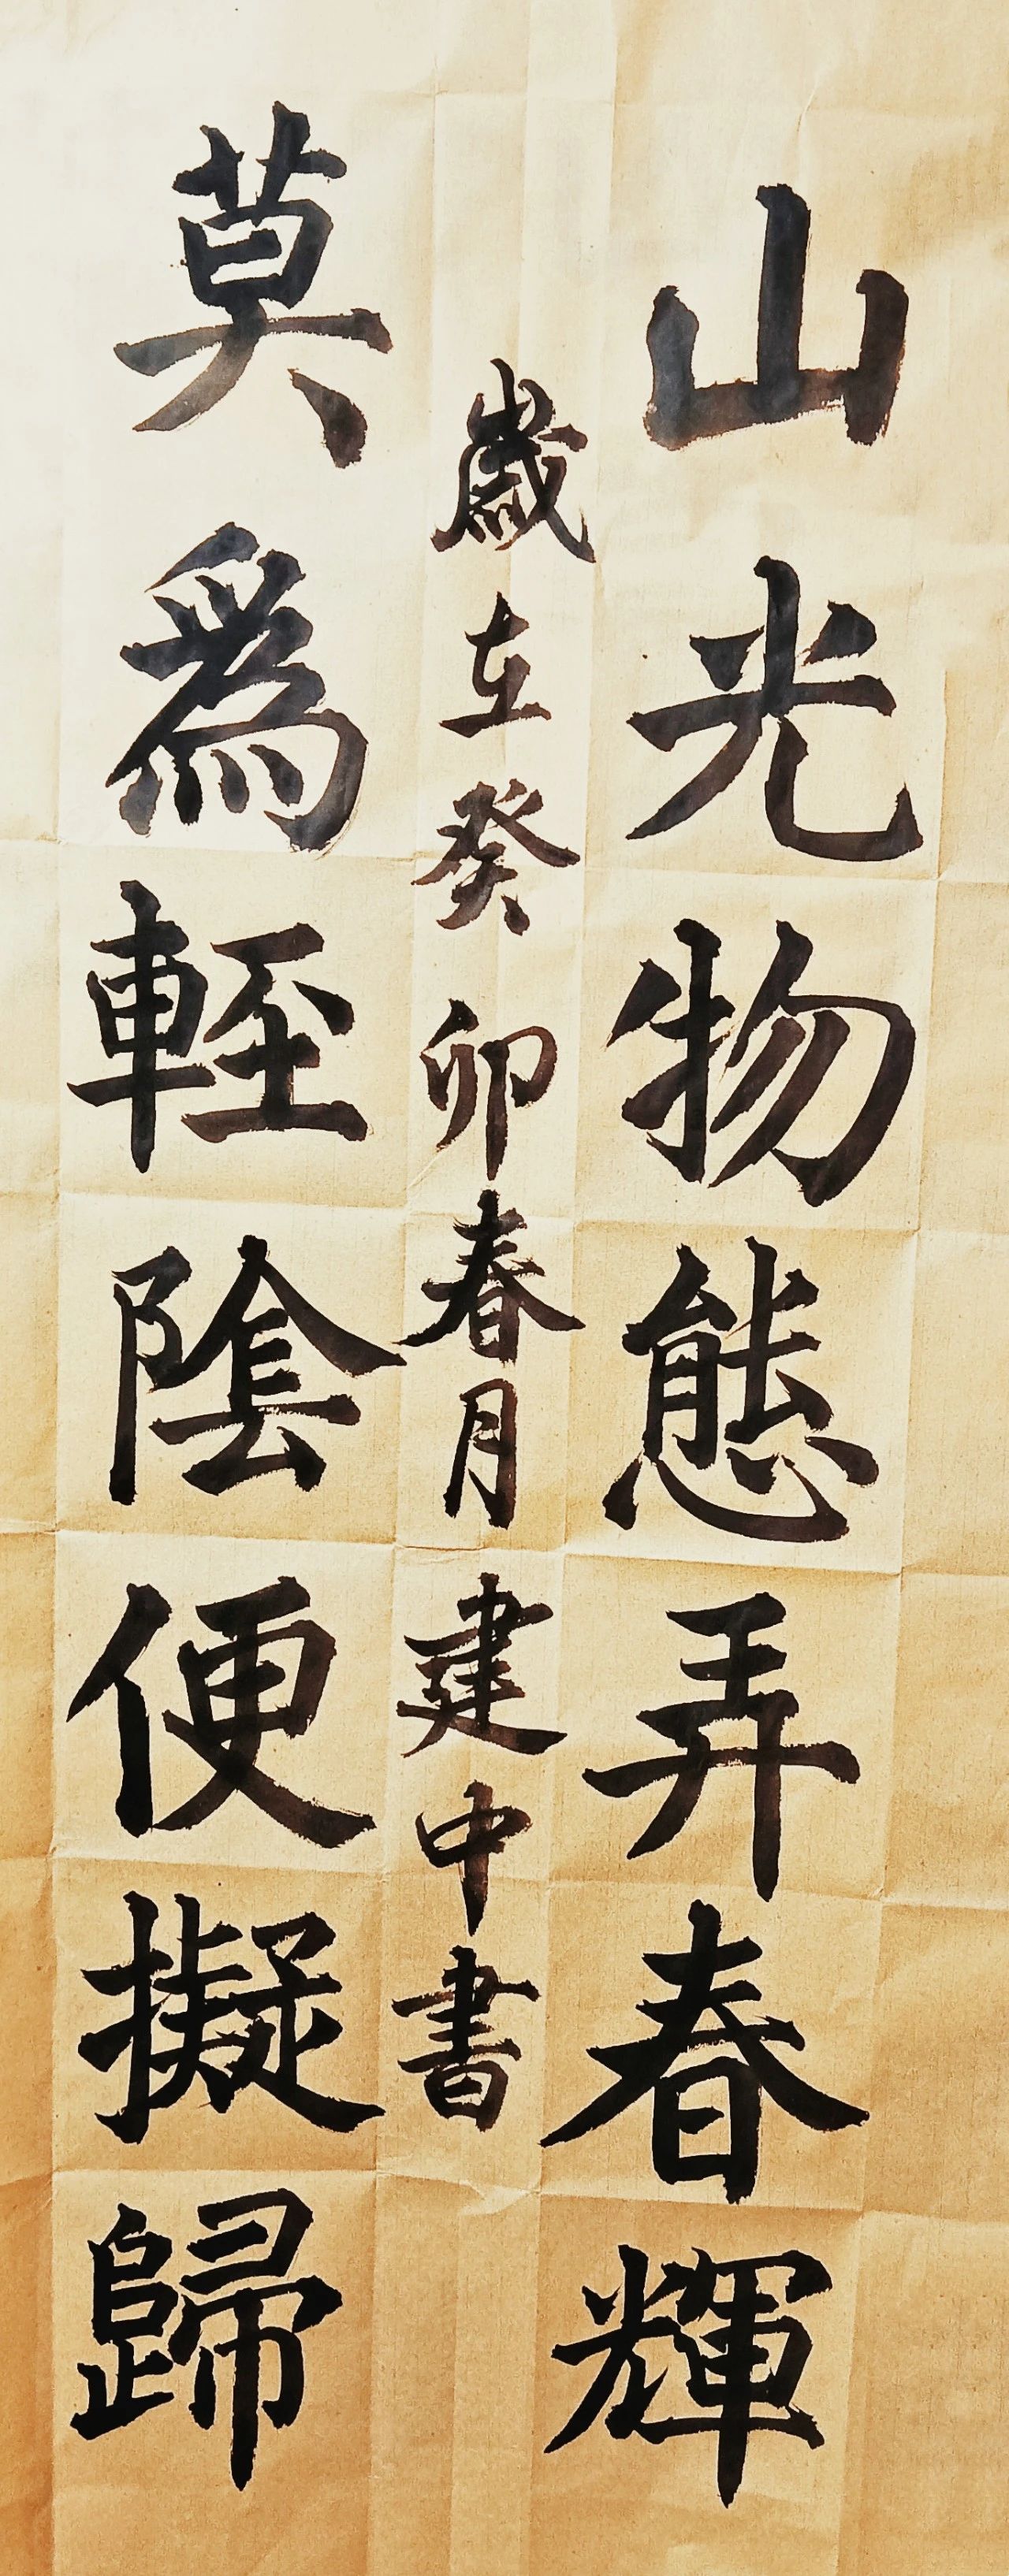 山光物態弄春輝
莫為輕陰便擬歸
歲在癸卯春月建中書